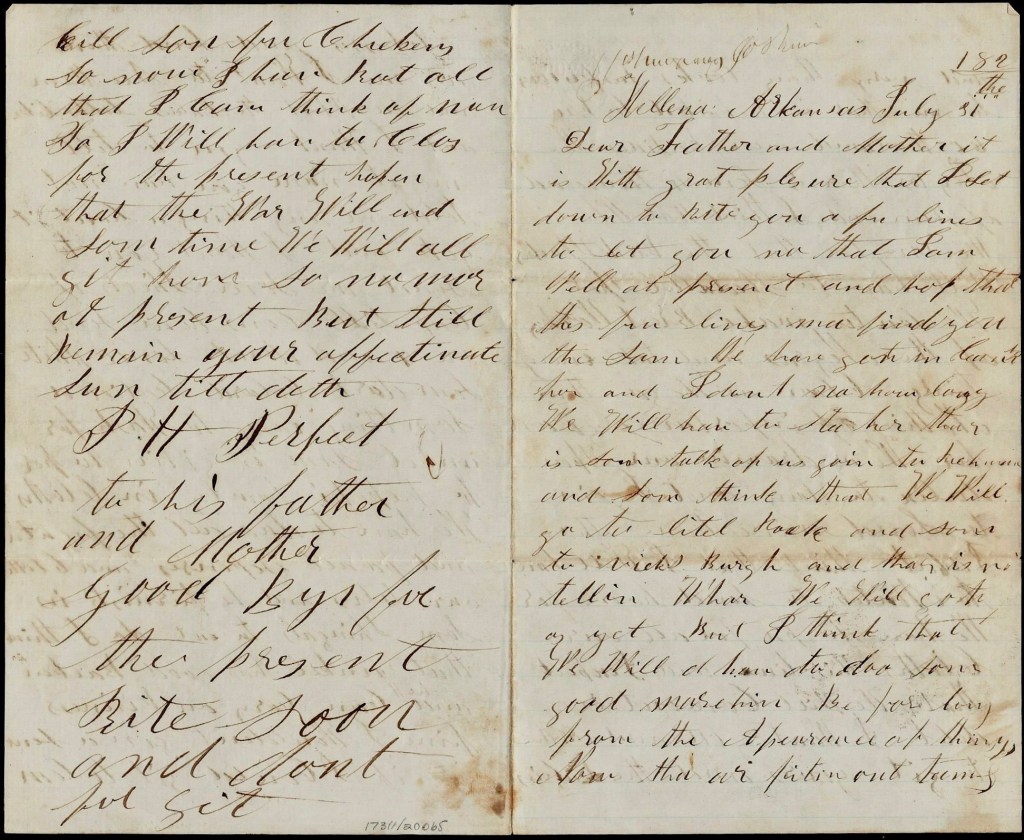 182
the
Hellena Arkansas July 31
Dear Father and Mother it
is With grat plesure that I set
down to Rite you a fu lines
to let you no that I am
Well at present and hop that
thes fu lines ma find you
the Sam We hav got in
her and I dont no how long
We Will hav to sta her thar
is som talk of us goin to
and Som think that We Will
go to litel Rock and som
to vicks Burgh and thar is no
tellin Whar We Will go to
as yet But I think that
We Will hav to doo som
good marchin Be for long
from the Apearance of things
tha ar fitin out teams
kill som fu Chickens
So now I hav
that I Can think of now
So I Will hav to Clos
for the present hopen
that the War Will end
Som time We Will all
git hom So no mor
at present But Still
Remain your affectinate
Sun till deth
P. H. Perfect
to his father
and Mother
Good By for
the present
Rite Soon
and dont
for git
17311/20065